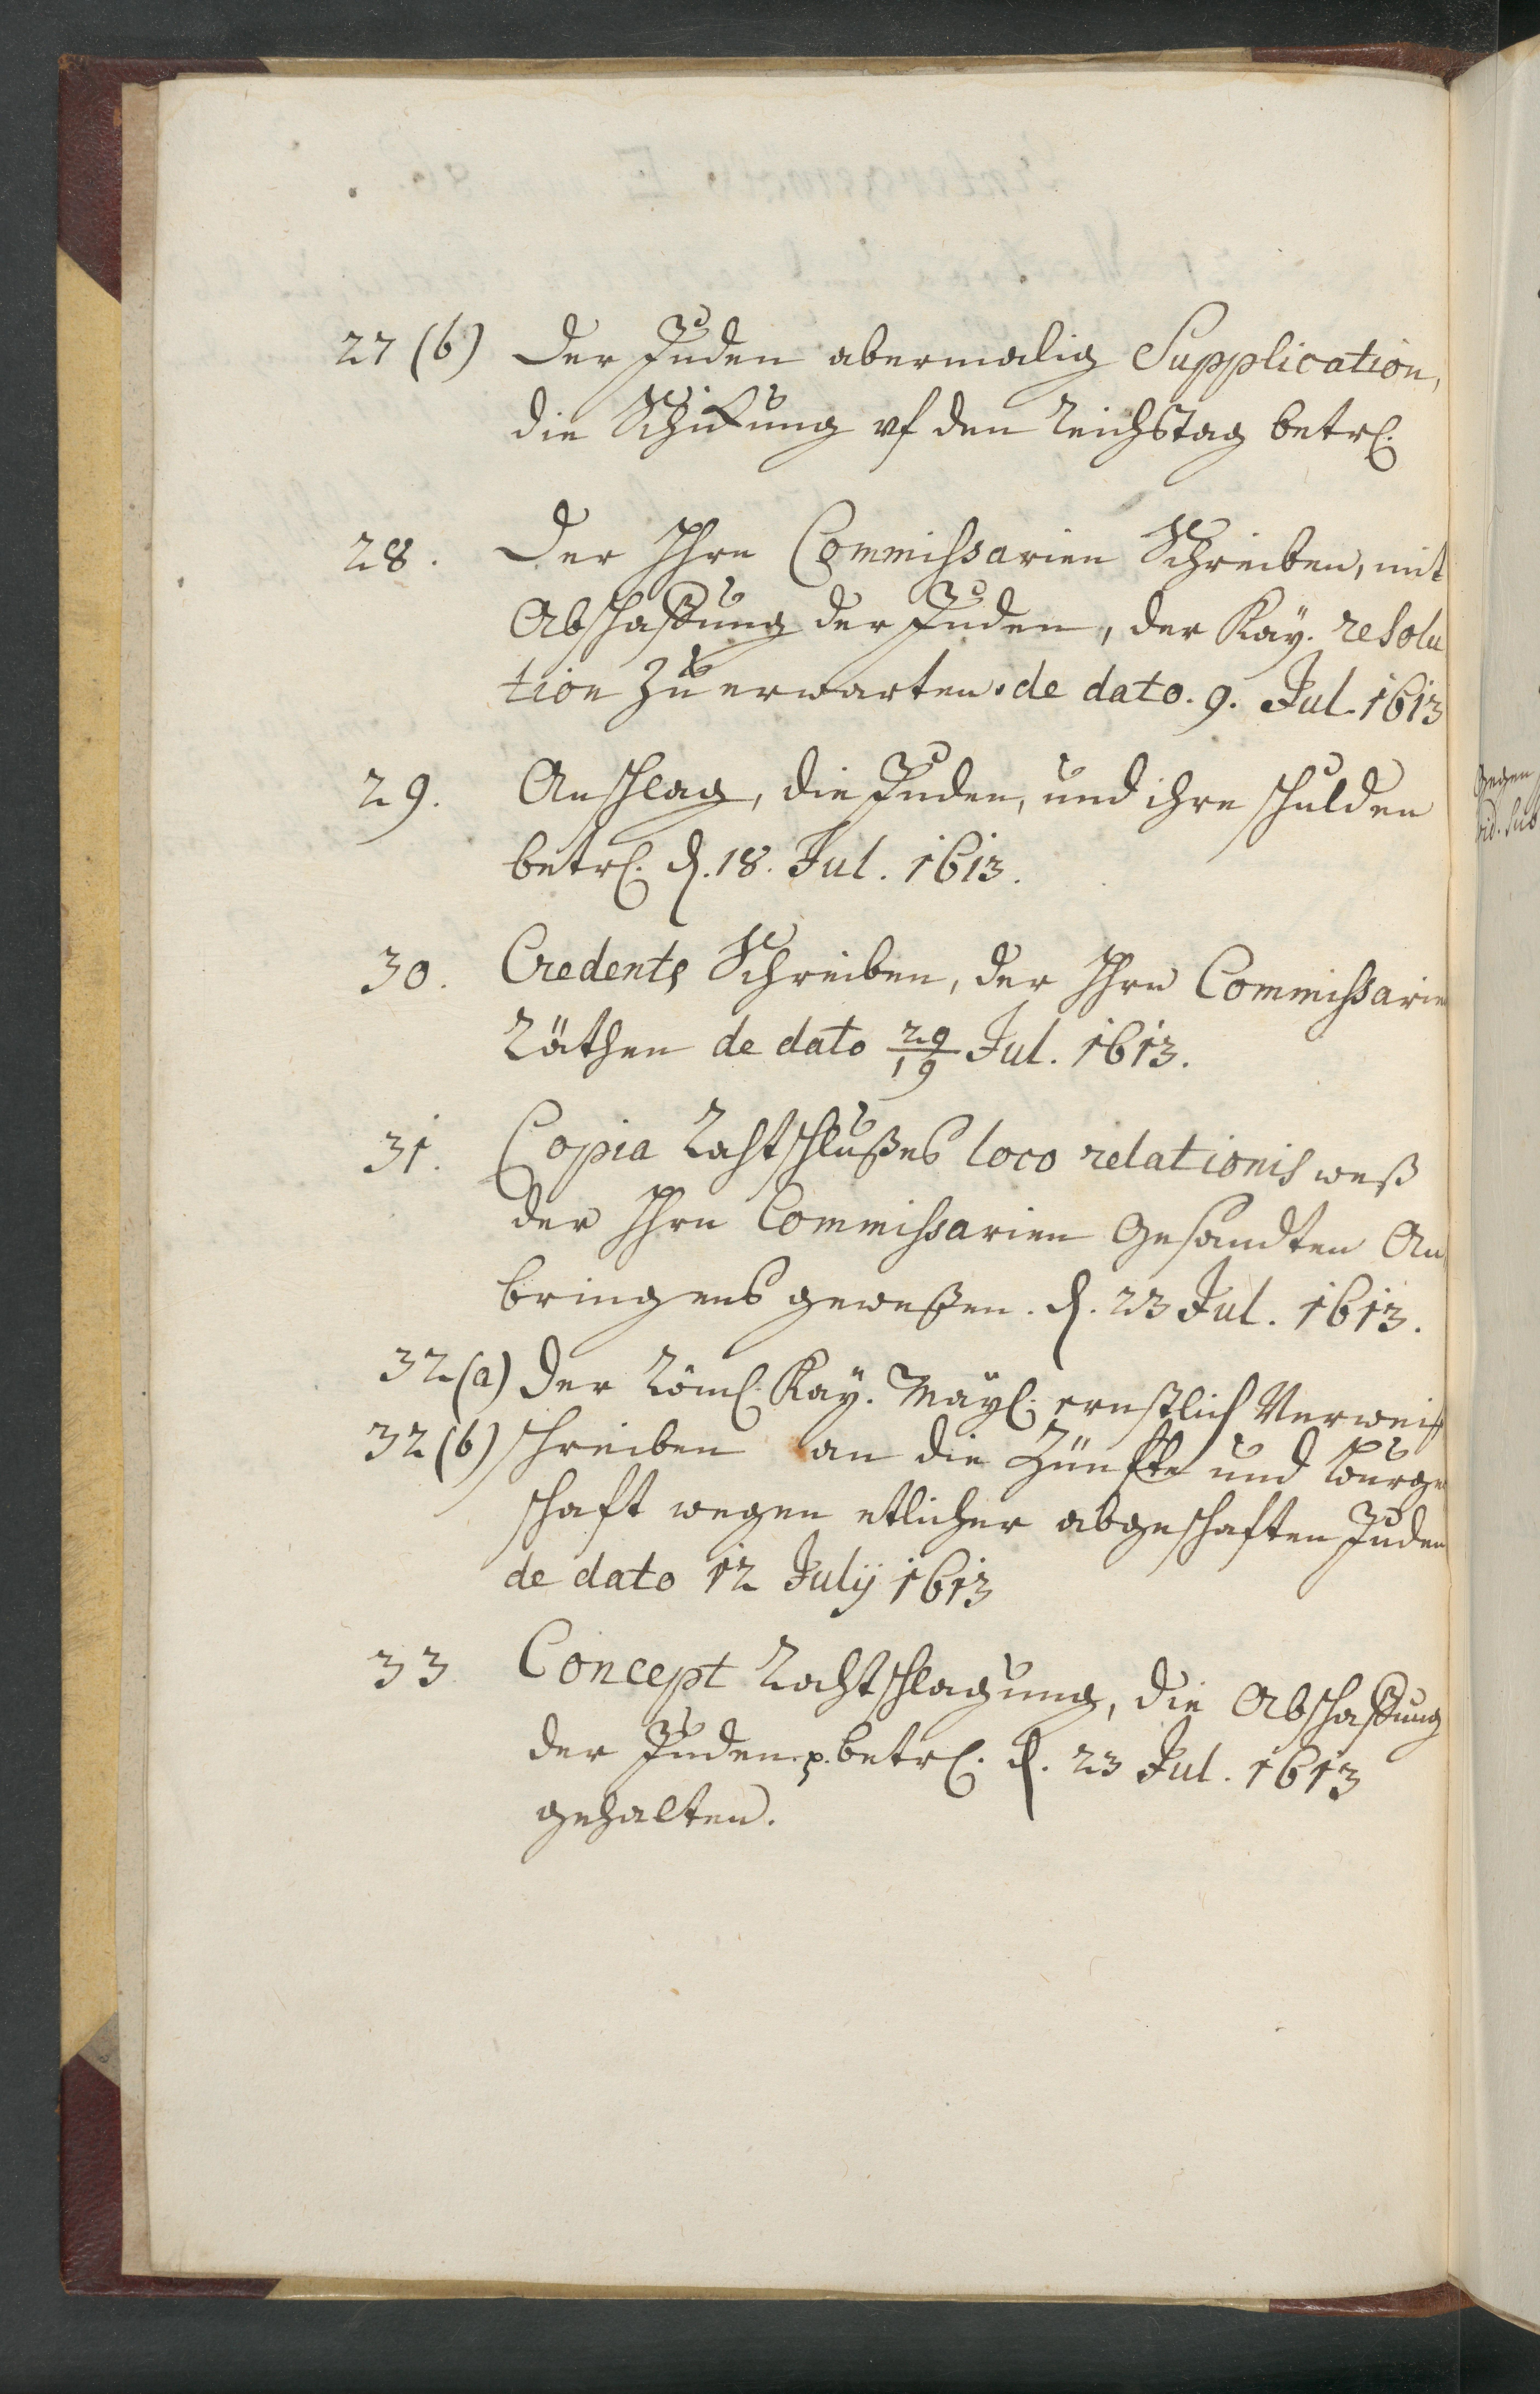 27 (b) Der Juden abermalig Supplication,
die Schickung uf den Reichstag betr.
28. Der Hhrn Commissarien Schreiben, mit
Abschaffung der Juden, der Kay. resolu
tion Zu erwarten. de dato. 9. Jul. 1613
29. Anschlag, die Juden, und ihre schulden
betr. d. 18. Jul. 1613.
30. Credents Schreiben, der Hhrn Commissarien
Räthen de dato 29/19 Jul. 1613.
31. Copia Rahtschlußes loco relationis weß
der Hhrn Commissarien Gesandten An
bringens geweßen. d. 23 Jul. 1613.
32 (a) Der Röml. Kay. Mayl. ernstlich Verweiß
32 (b) schreiben an die Zünfte und burger
schaft wegen etlicher abgeschaften Juden
de dato 12 Julij 1613
33 Concept Rahtschlagung, die Abschaffung
der Juden p. betr. d. 23 Jul. 1613
gehalten.
Gegen
vid. sub